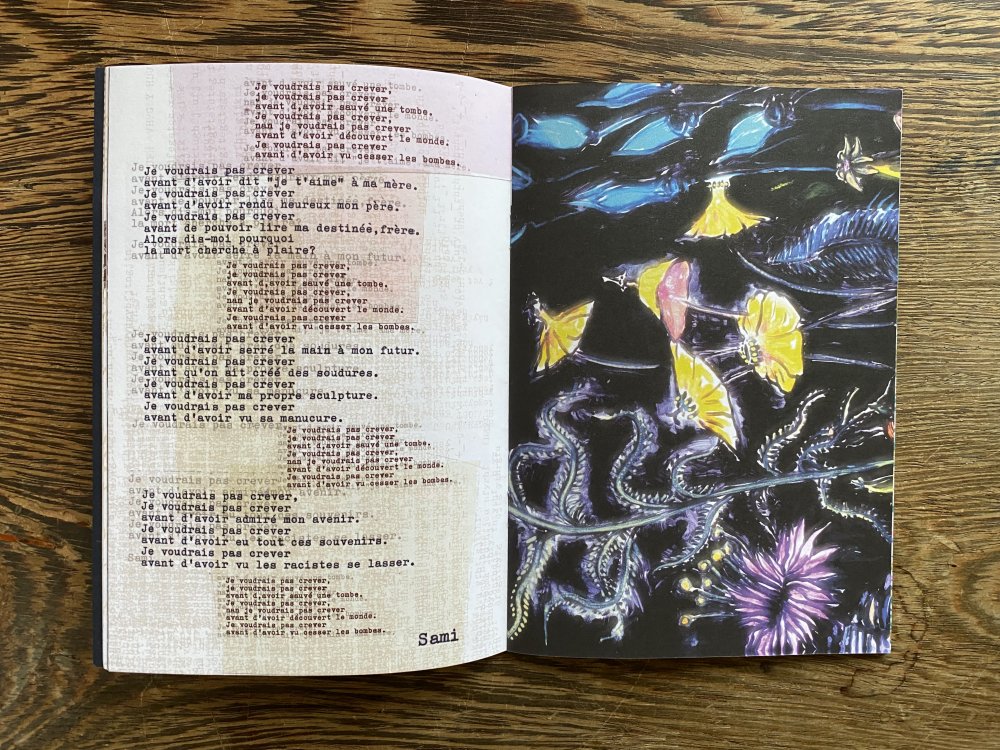 Je voudrais pas crever,
je voudrais pas crever
avant d,avoir sauvé une tombe.
Je voudrais pas crever,
nan je voudrais pas crever
avant d'avoir découvert le monde.
Je voudrais pas crever
avant d'avoir vu cesser les bombes.
Je voudrais pas crever
avant d'avoir dit "je t'aime" à ma mère.
Je voudrais pas crever
avant d'avoir rendu heureux mon père.
Je voudrais pas crever
avant de pouvoir lire ma destinée,frère.
Alors dis-moi pourquoi
la mort cherche à plaire?
Je voudrais pas crever,
je voudrais pas crever
avant d,avoir sauvé une tombe.
Je voudrais pas crever,
nan je voudrais pas crever
avant d'avoir découvert le monde.
Je voudrais pas crever
avant d'avoir vu cesser les bombes.
Je voudrais pas crever
avant d'avoir serré la main à mon futur.
Je voudrais pas crever
avant qu'on ait créé des soudures.
Je voudrais pas crever
avant d'avoir ma propre sculpture.
Je voudrais pas crever
avant d'avoir vu sa manucure.
Je voudrais pas crever,
je voudrais pas crever
avant d,avoir sauvé une tombe.
Je voudrais pas crever,
nan je voudrais pas crever
avant d'avoir découvert le monde.
Je voudrais pas crever
avant d'avoir vu cesser les bombes.
Je voudrais pas crever,
Je voudrais pas crever
avant d'avoir admiré mon avenir.
Je voudrais pas crever
avant d'avoir eu tout ces souvenirs.
Je voudrais pas crever
avant d'avoir vu les racistes se lasser.
Je voudrais pas crever,
je voudrais pas crever
avant d,avoir sauvé une tombe.
Je voudrais pas crever,
nan je voudrais pas crever
avant d'avoir découvert le monde.
Je voudrais pas crever
avant d'avoir vu cesser les bombes.
Sami